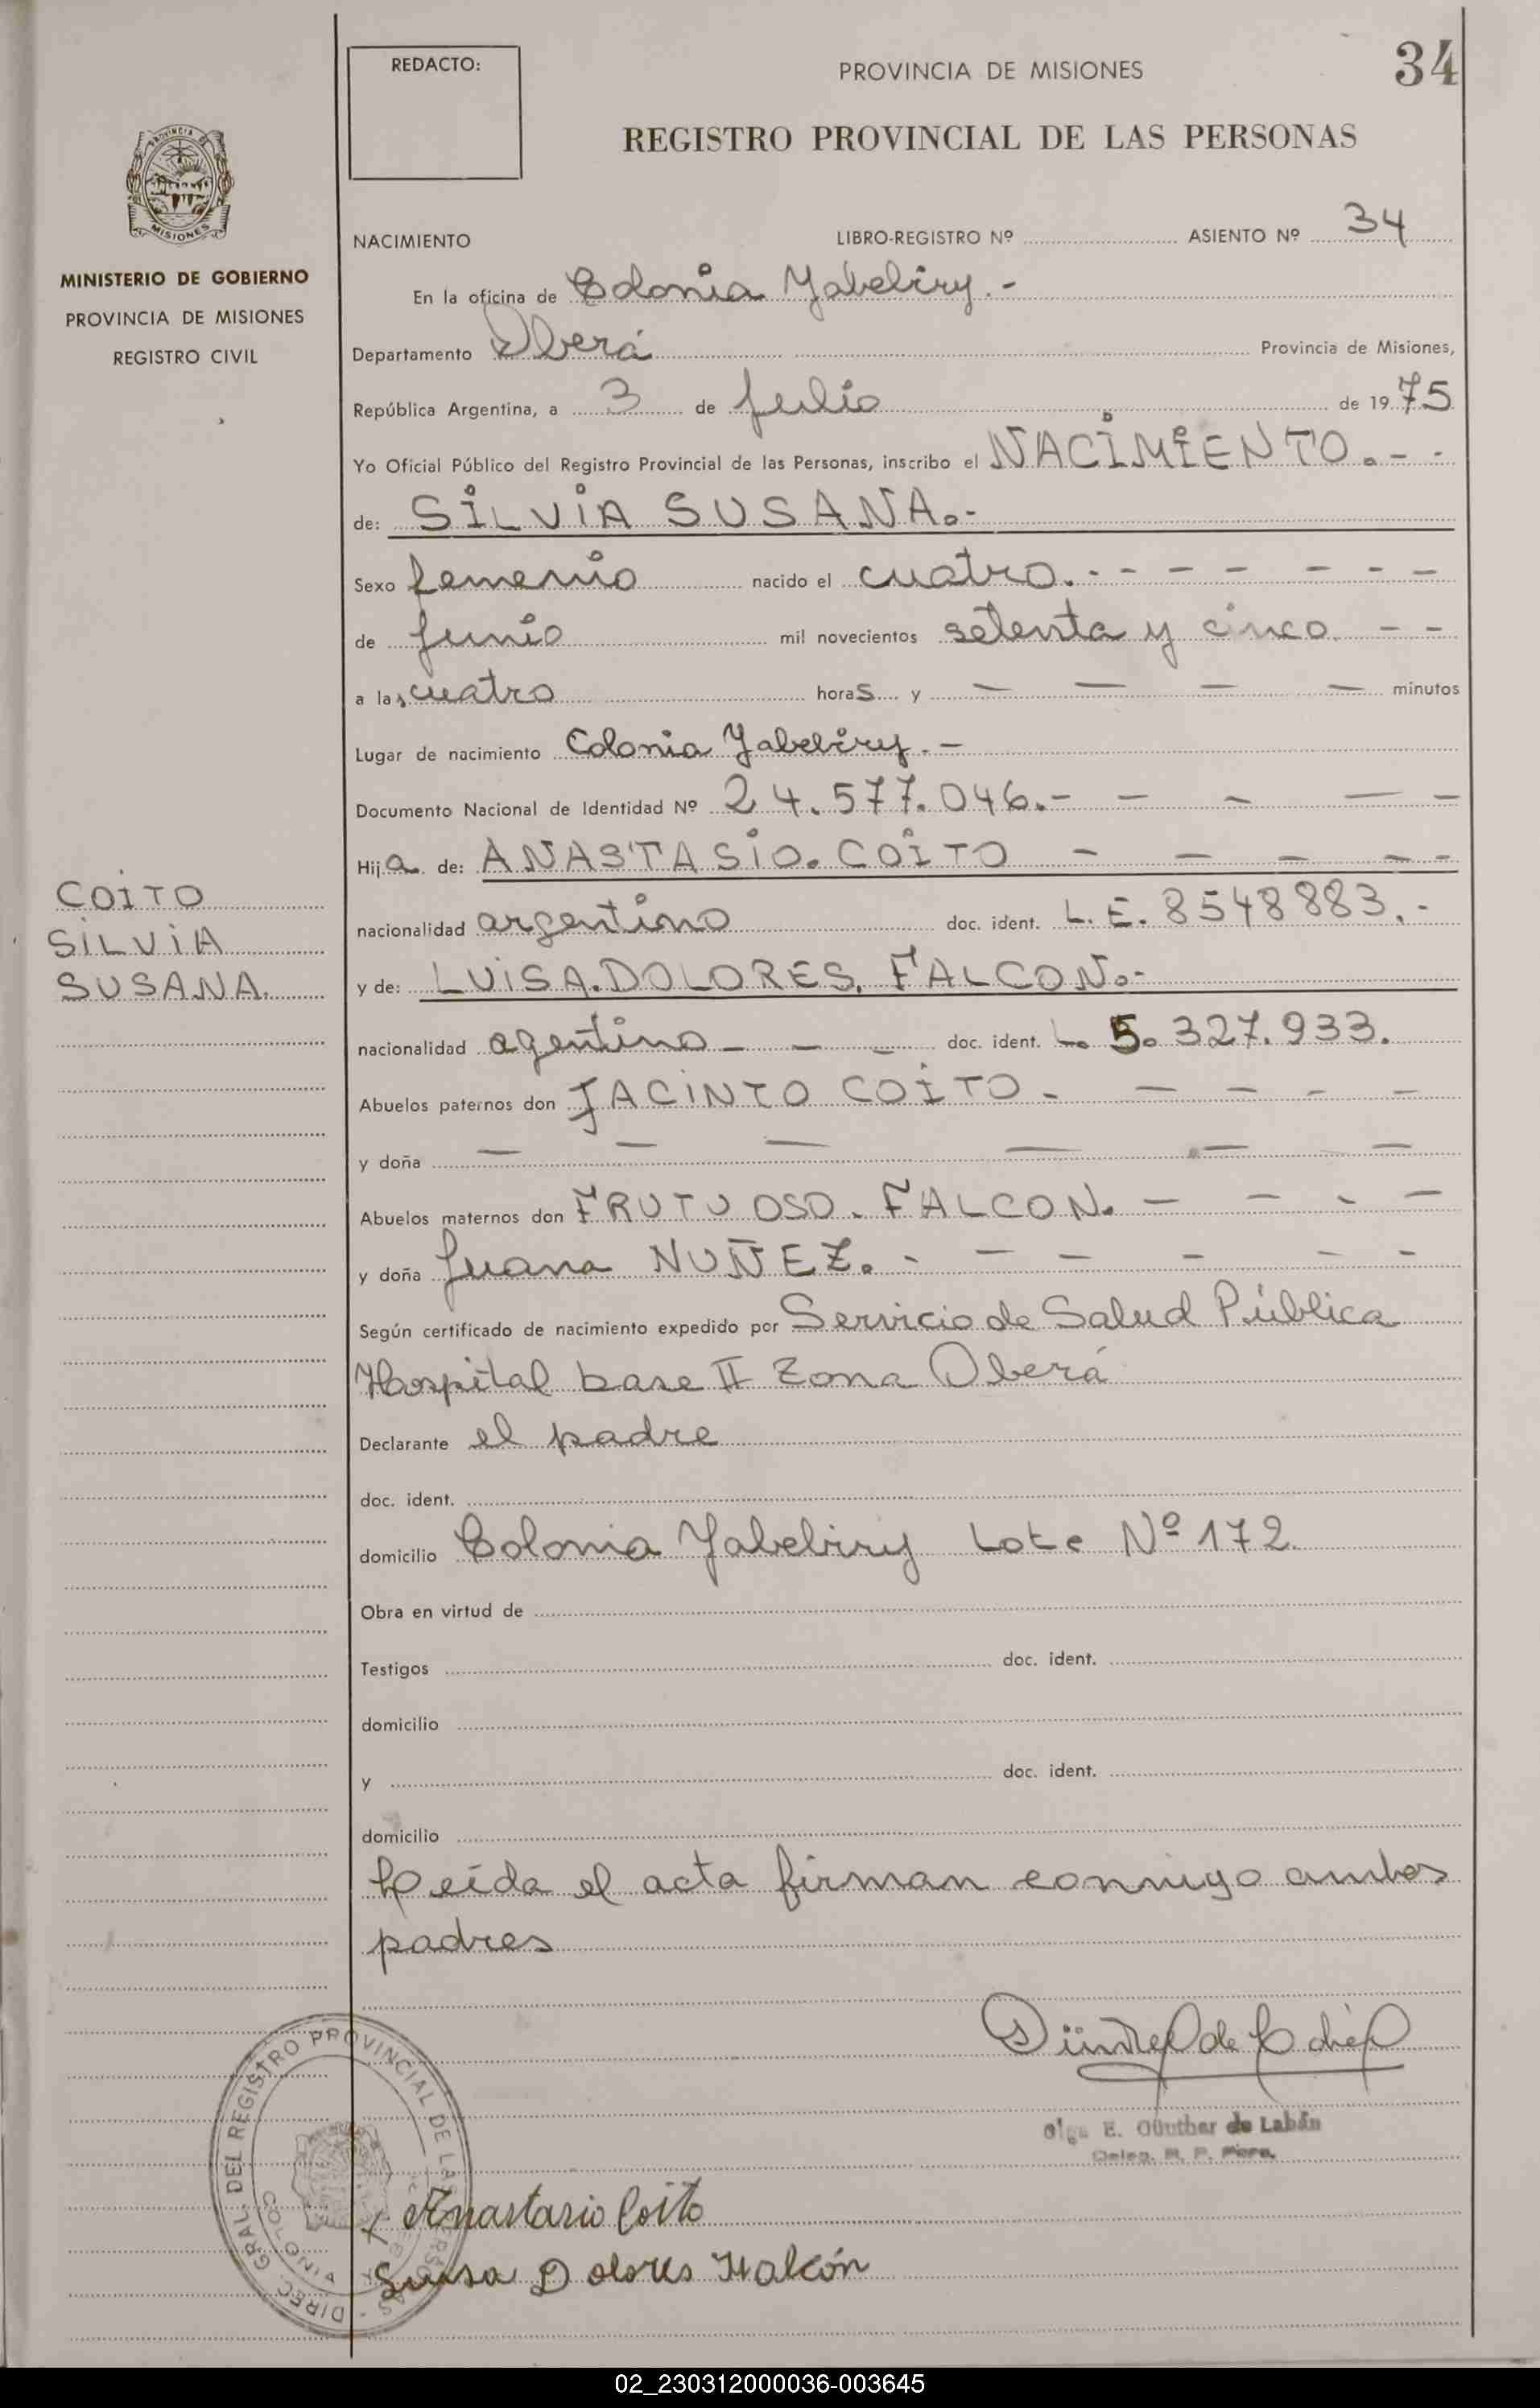 REDACTO:
PROVINCIA DE MISIONES
34
REGISTRO PROVINCIAL DE LAS PERSONAS
PROVINCIA DE
MISIONES
MINISTERIO DE GOBIERNO
PROVINCIA DE MISIONES
REGISTRO CIVIL
NACIMIENTO LIBRO-REGISTRO Nº ASIENTO Nº 34
En la oficina de Colonia Yabebiry.-
Departamento Oberá Provincia de Misiones,
República Argentina, a 3 de Julio de 1975
Yo Oficial Público del Registro Provincial de las Personas, inscribo el NACIMIENTO.- -
de: SILVIA SUSANA.-
Sexo femenino nacido el cuatro.- - - - - - -
de Junio mil novecientos setenta y cinco - -
a las cuatro horas y — — — — minutos
Lugar de nacimiento Colonia Yabebiry.-
Documento Nacional de Identidad Nº 24.577.046.- - - - -
Hija de: ANASTASIO. COITO - - - - -
COITO
SILVIA
SUSANA.
nacionalidad argentino doc. ident. L.E. 8548883.-
y de: LUISA. DOLORES. FALCON.-
nacionalidad agentina - - - doc. ident. L. 5. 327.933.
Abuelos paternos don JACINTO COITO - - - - -
y doña — — — — — —
Abuelos maternos don FRUTUOSO. FALCON. - - - -
y doña Juana NUÑEZ. - - - - - -
Según certificado de nacimiento expedido por Servicio de Salud Pública
Hospital base II Zona Oberá
Declarante el padre
doc. ident.
domicilio Colonia Yabebiry Lote Nº 172
Obra en virtud de
Testigos doc. ident.
domicilio
y doc. ident.
domicilio
Leída el acta firman conmigo ambos
padres
Olga E. Günther de Labán
Deleg. R. P. Pers.
DIREC. GRAL. DEL REGISTRO PROVINCIAL DE LAS PERSONAS
Anastasio Coito
Luisa Dolores Halcón
02_230312000036-003645